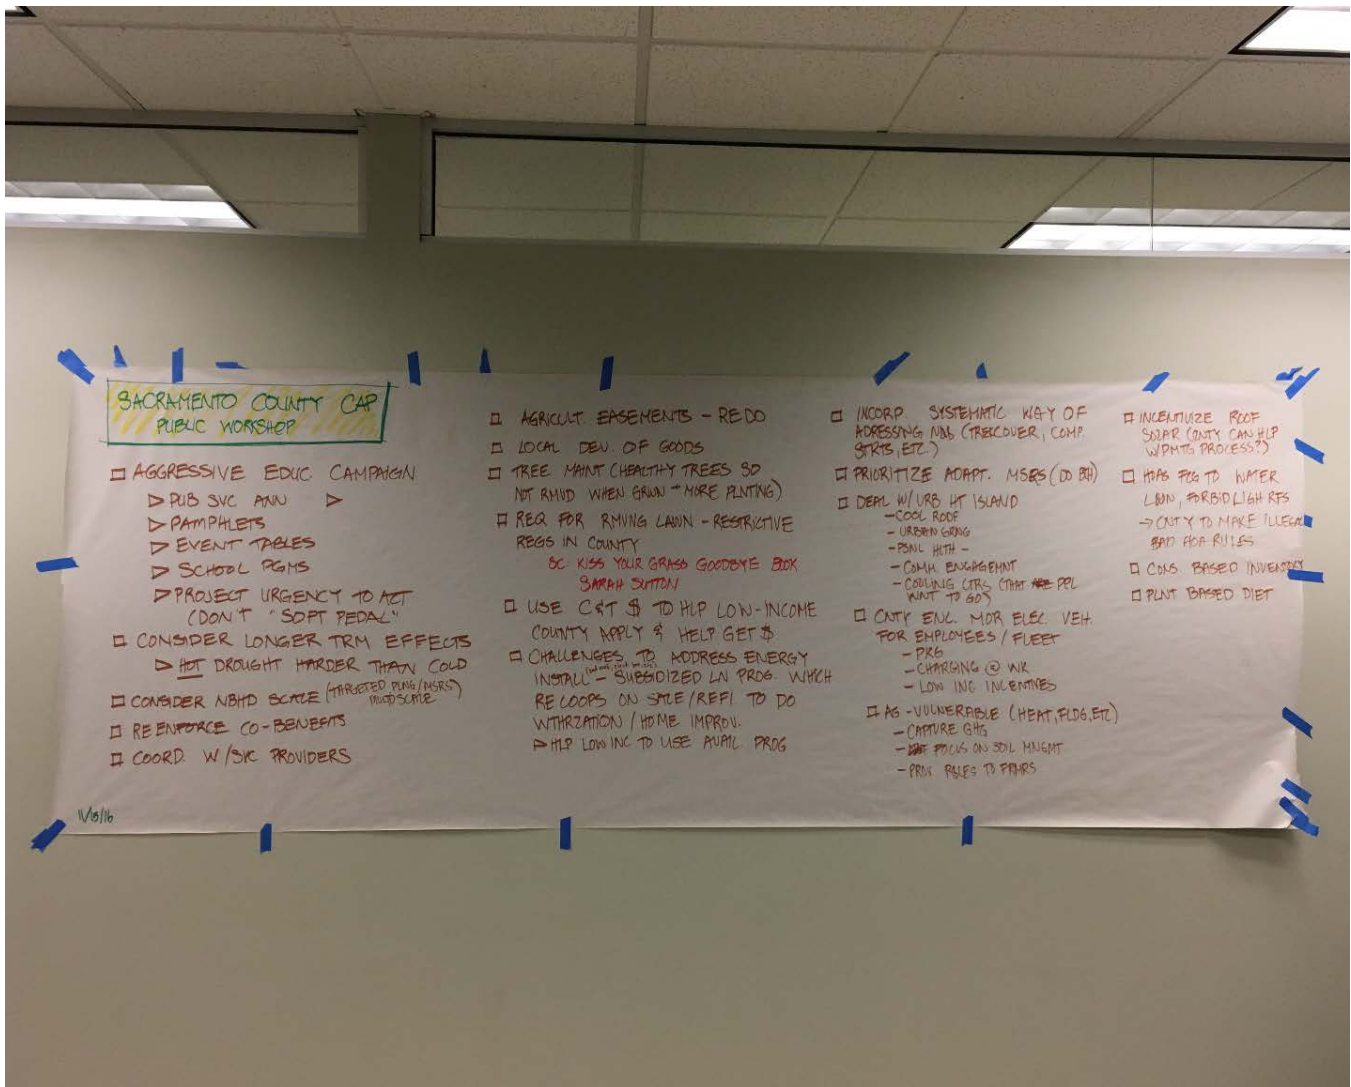 SACRAMENTO COUNTY CAP
PUBLIC WORKSHOP
AGGRESSIVE EDUC CAMPAIGN
PUB SVC ANN
PAMPHLETS
EVENT TABLES
SCHOOL PGMS
PROJECT URGENCY TO ACT
(DON'T "SOFT PEDAL"
CONSIDER LONGER TRM EFFECTS
HOT DROUGHT HARDER THAN COLD
CONSIDER NBHD SCALE (TARGETED PLNG/MSRS)
MULTI SCALE
REENFORCE CO-BENEFITS
COORD. W/SVC PROVIDERS
11/15/16
AGRICULT. EASEMENTS - REDO
LOCAL DEV. OF GOODS
TREE MAINT (HEALTHY TREES SO
NOT RMVD WHEN GRWN - MORE PLNTING)
REQ FOR RMVNG LAWN - RESTRICTIVE
REGS IN COUNTY
SC: KISS YOUR GRASS GOODBYE BOOK
SARAH SUTTON
USE C&T $ TO HLP LOW-INCOME
COUNTY APPLY & HELP GET $
CHALLENGES TO ADDRESS ENERGY
INSTALL - SUBSIDIZED LN PROG. WHICH
RE LOOPS ON SALE/REFI TO DO
WTHRZATION / HOME IMPROV.
HLP LOW INC TO USE AVAIL PROG
INCORP. SYSTEMATIC WAY OF
ADRESSING (TREECOVER, COMP.
STRTS, ETC.)
PRIORITIZE ADAPT. MSRS (DO BTH)
DEAL W/ URB HT ISLAND
- COOL ROOF
- URBAN GRNG
- PSNL HLTH -
- COMM. ENGAGEMNT
- COOLING CTRS (THAT PPL
WNT TO GO)
CNTY ENC. MOR ELEC. VEH.
FOR EMPLOYEES / FLEET
- PRG
- CHARGING @ WK
- LOW INC INCENTIVES
AG - VULNERABLE (HEAT, FLDG, ETC)
- CAPTURE GHG
- FOCUS ON SOIL MNGMT
- PROV. TO FRMRS
INCENTIVIZE ROOF
SOLAR (CNTY CAN HLP
W/PMTG PROCESS?)
HOAS TO WATER
LAWN, FORBID LIGH RFS
→ CNTY TO MAKE ILLEGAL
BAD HOA RULES
CONS. BASED INVENTORY
PLNT BASED DIET